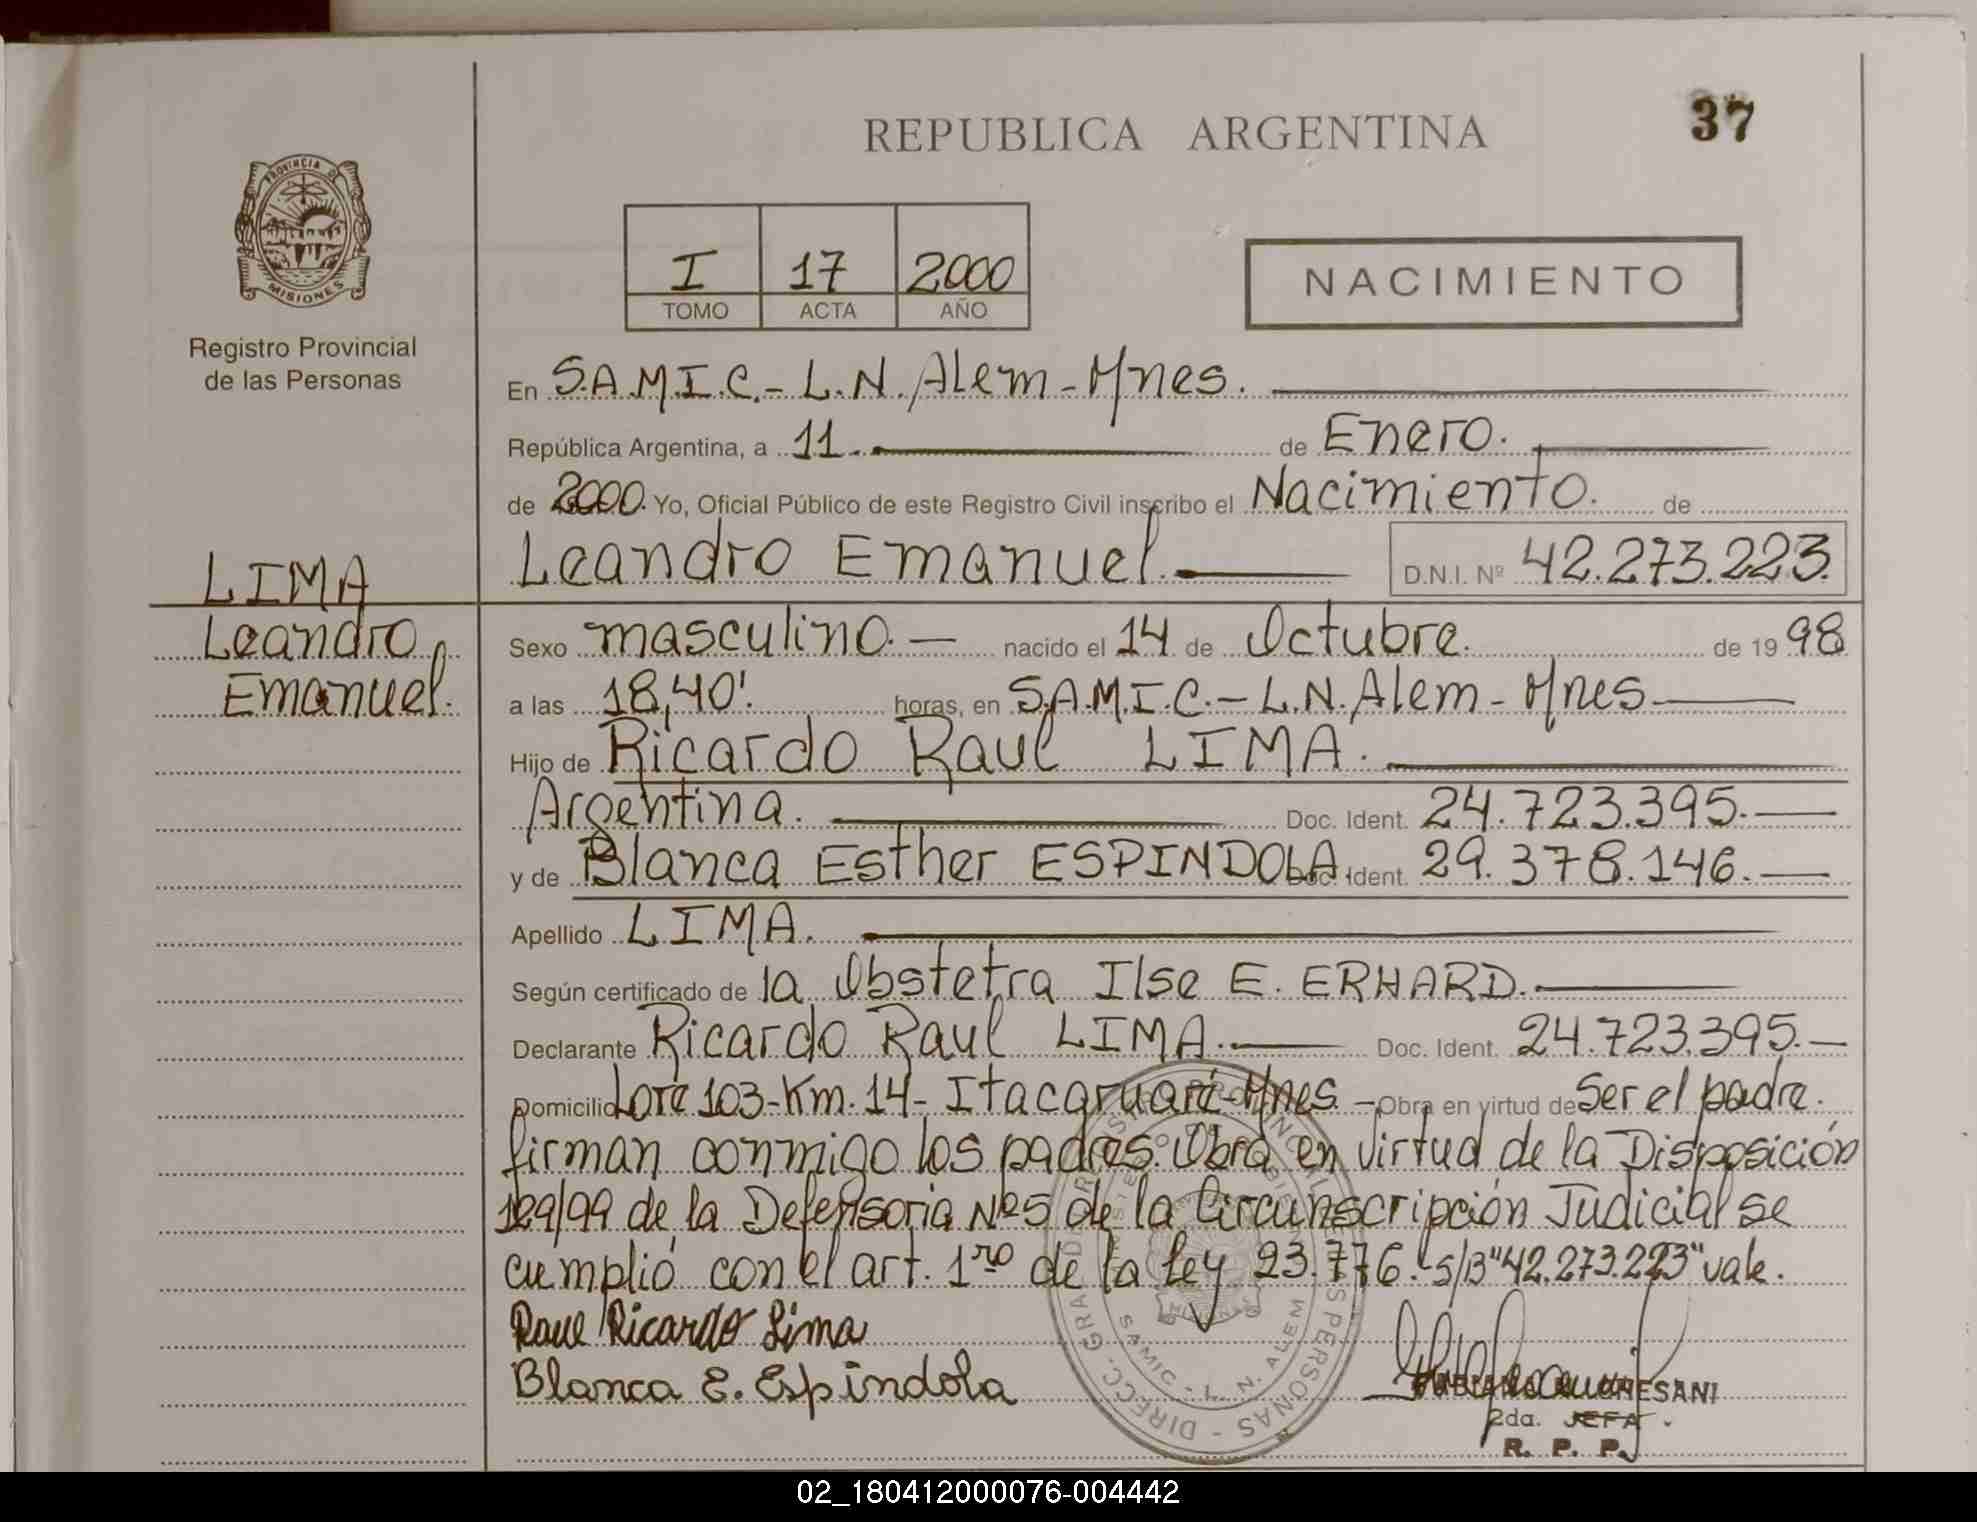 37
REPUBLICA ARGENTINA
PROVINCIA DE
MISIONES
Registro Provincial
de las Personas
I 17 2000
TOMO ACTA AÑO
NACIMIENTO
En S.A.M.I.C.- L.N. Alem - Mnes.
República Argentina, a 11. de Enero.
de 2000. Yo, Oficial Público de este Registro Civil inscribo el Nacimiento. de
Leandro Emanuel. D.N.I. Nº 42.273.223.
LIMA
Leandro
Emanuel.
Sexo masculino. — nacido el 14 de Octubre. de 19 98
a las 18,40'. horas, en S.A.M.I.C.- L.N. Alem - Mnes
Hijo de Ricardo Raul LIMA.
Argentina. Doc. Ident. 24.723.395.
y de Blanca Esther ESPINDOLA Doc. Ident. 29.378.146.
Apellido LIMA.
Según certificado de la Obstetra Ilse E. ERHARD.
Declarante Ricardo Raul LIMA. Doc. Ident. 24.723.395.
Domicilio Lote 103-Km. 14- Itacaruaré-Mnes. - Obra en virtud de Ser el padre.
firman conmigo los padres. Obra en virtud de la Disposición
129/99 de la Defensoria Nº5 de la Circunscripción Judicial se
cumplió con el art. 1ro de la Ley 23.776. s/B "42.273.223" vale.
Raul Ricardo Lima
Blanca E. Espindola
SAMIC - L. N. ALEM
2da. JEFA.
R. P. P.
02_180412000076-004442